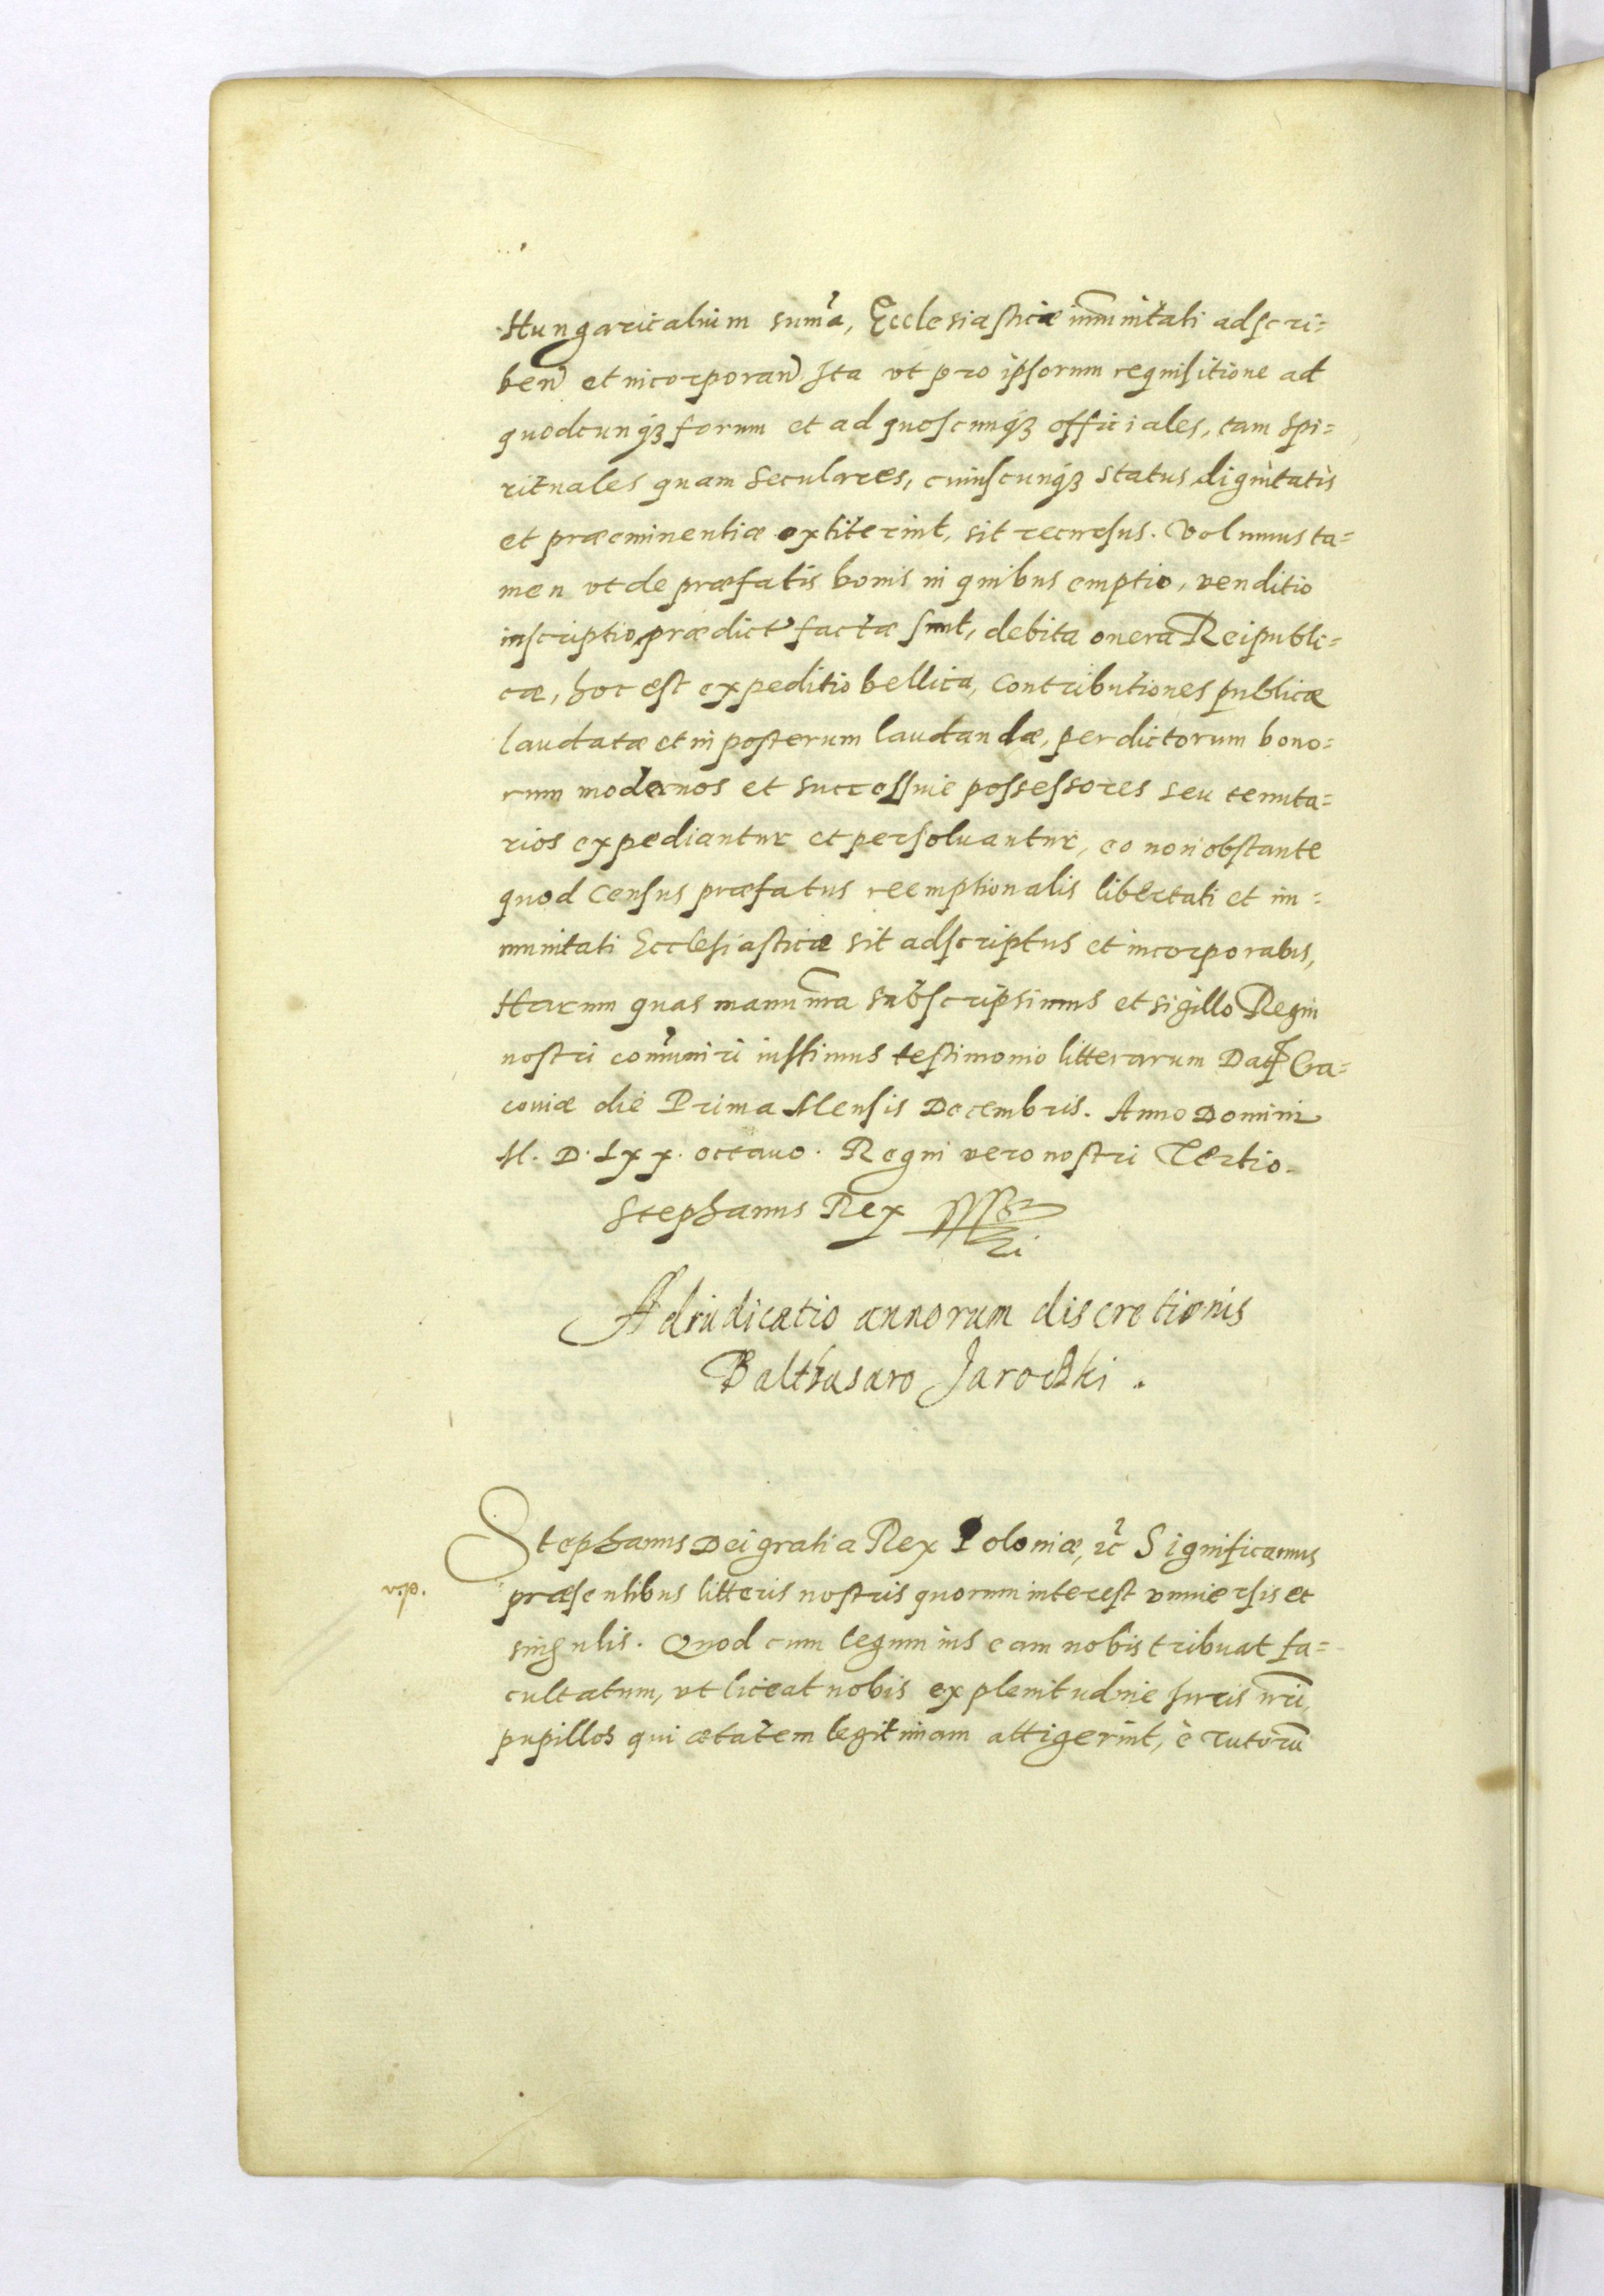 Hungaricalium summa, Ecclesiasticæ immunitati adscri=
ben et incorporan Ita vt pro ipsorum requisitione ad
quodcunqz forum et ad quoscunqz officiales, tam spi=
rituales quam seculares, cuiuscunqz status dignitatis
et præeminentiæ extiterint, sit recursus. Volumus ta=
men vt de præfatis bonis in quibus emptio, venditio
inscriptio prædict factæ sunt, debita onera Reipubli=
cæ, hoc est expeditio bellica, contributiones publicæ
laudatæ et in posterum laudandæ, per dictorum bono=
rum modernos et successiue possessores seu tenuta=
rios expediantur et persoluantur, eo non obstante
quod census præfatus reemptionalis libertati et im=
munitati Ecclesiasticæ sit adscriptus et incorporatus,
Harum quas manu nra subscripsimus et sigillo Regni
nostri communiri iussimus testimonio litterarum Dat Cra=
couiæ die Prima Mensis Decembris. Anno Domini
M. D. Lxx. octauo. Regni vero nostri Tertio.
Stephanus Rex
Adiudicatio annorum discretionis
Balthasaro Jarocki.
Stephanus Dei gratia Rex Poloniæ, etc Significamus
præsentibus litteris nostris quorum interest vniuersis et
singulis. Quod cum legum ius eam nobis tribuat fa=
cultatum, vt liceat nobis ex plenitudine Iuris nri,
pupillos qui ætatem legitimam attigerint, è Tutorũ